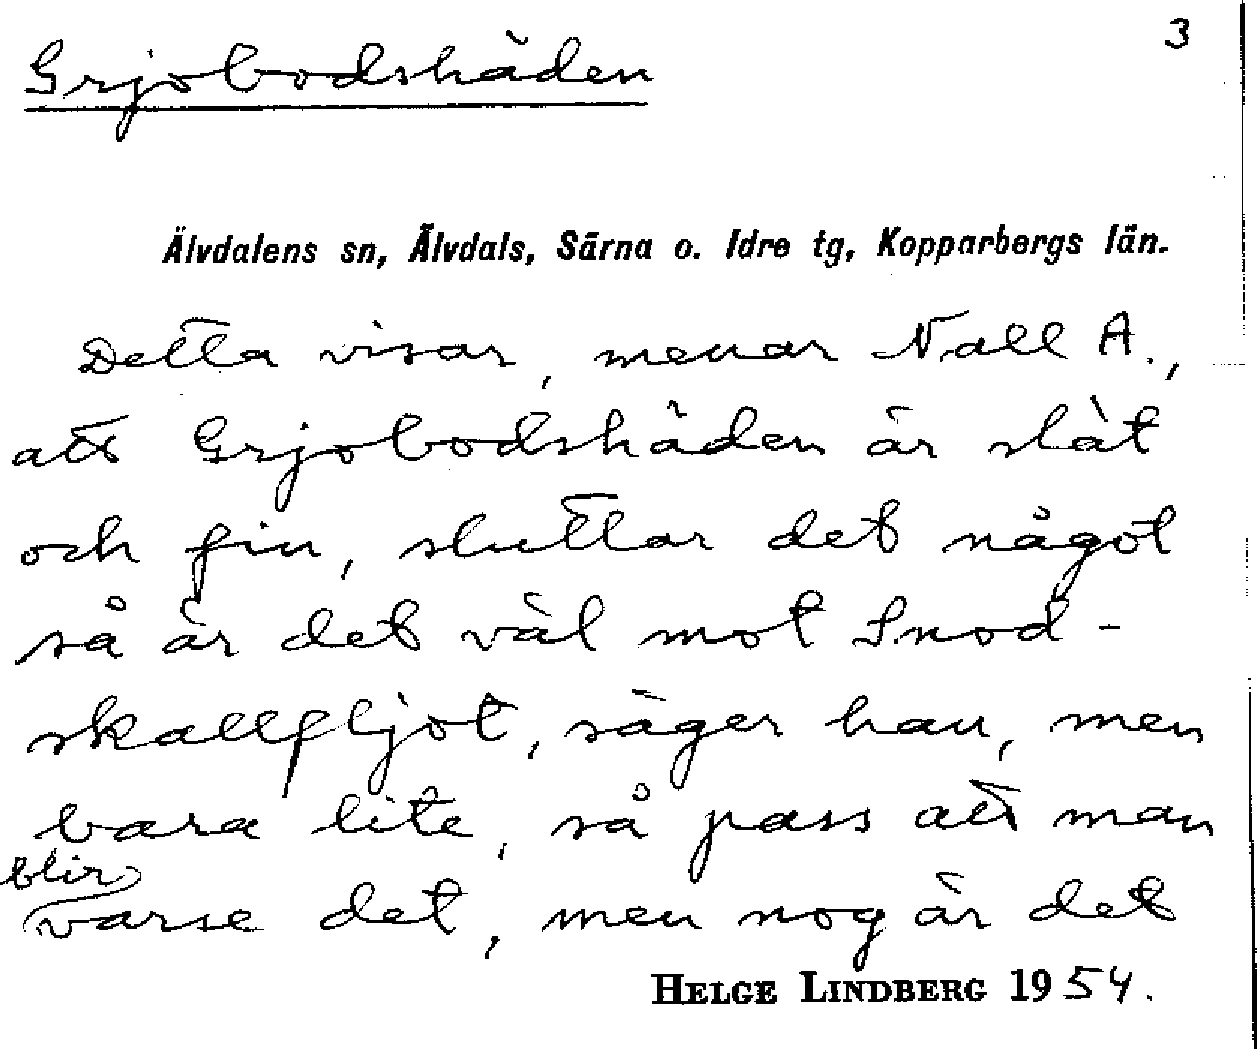 3
Grjobodshäden
Älvdalens sn, Älvdals, Särna o. Idre tg, Kopparbergs län.
Detta visar, menar Nall A.,
att Grjobodshäden är slät
och fin, sluttar det något
så är det väl mot Snod-
skallfljot, säger han, men
bara lite, så pass att man
blir
varse det, men nog är det
HELGE LINDBERG 1954.